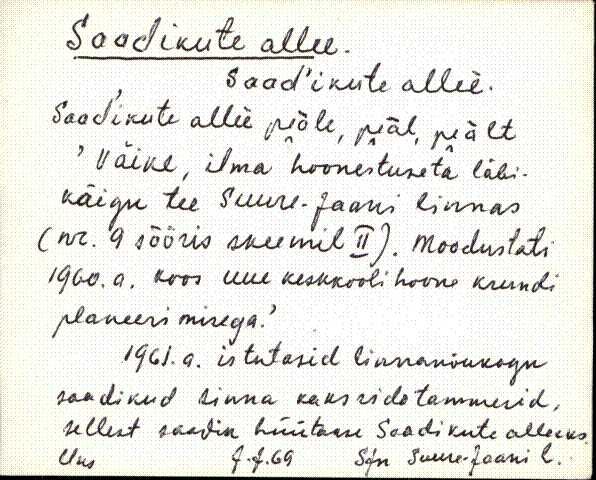 Saadikute allee.
Saad'ikute alleè.
Saad'ikute alleè peäle, peäl, peält
'Väike, ilma hoonestuseta läbi-
käigu tee Suure-Jaani linnas
(nr. 9 sõõris skeemil II). Moodustati
1960. a. koos uue keskkooli hoone krundi
planeerimisega.'
1961. a. istutasid linnanõukogu
saadikud sinna kaks rida tammesid,
sellest saadik hüütakse Saadikute alleeks.
Uus J.J. 69 Sjn Suure-Jaani l.